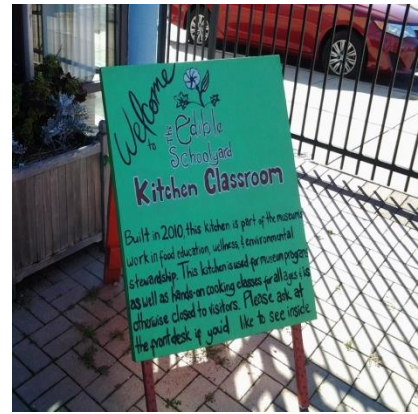 Welcome
to
THE Edible
Schoolyard
Kitchen Classroom
Built in 2010, this kitchen is part of the museums
work in food education, wellness, & environmental
stewardship. This kitchen is used for museum programs
as well as hands-on cooking classes for all ages & is
otherwise closed to visitors. Please ask at
the front desk if you'd like to see inside